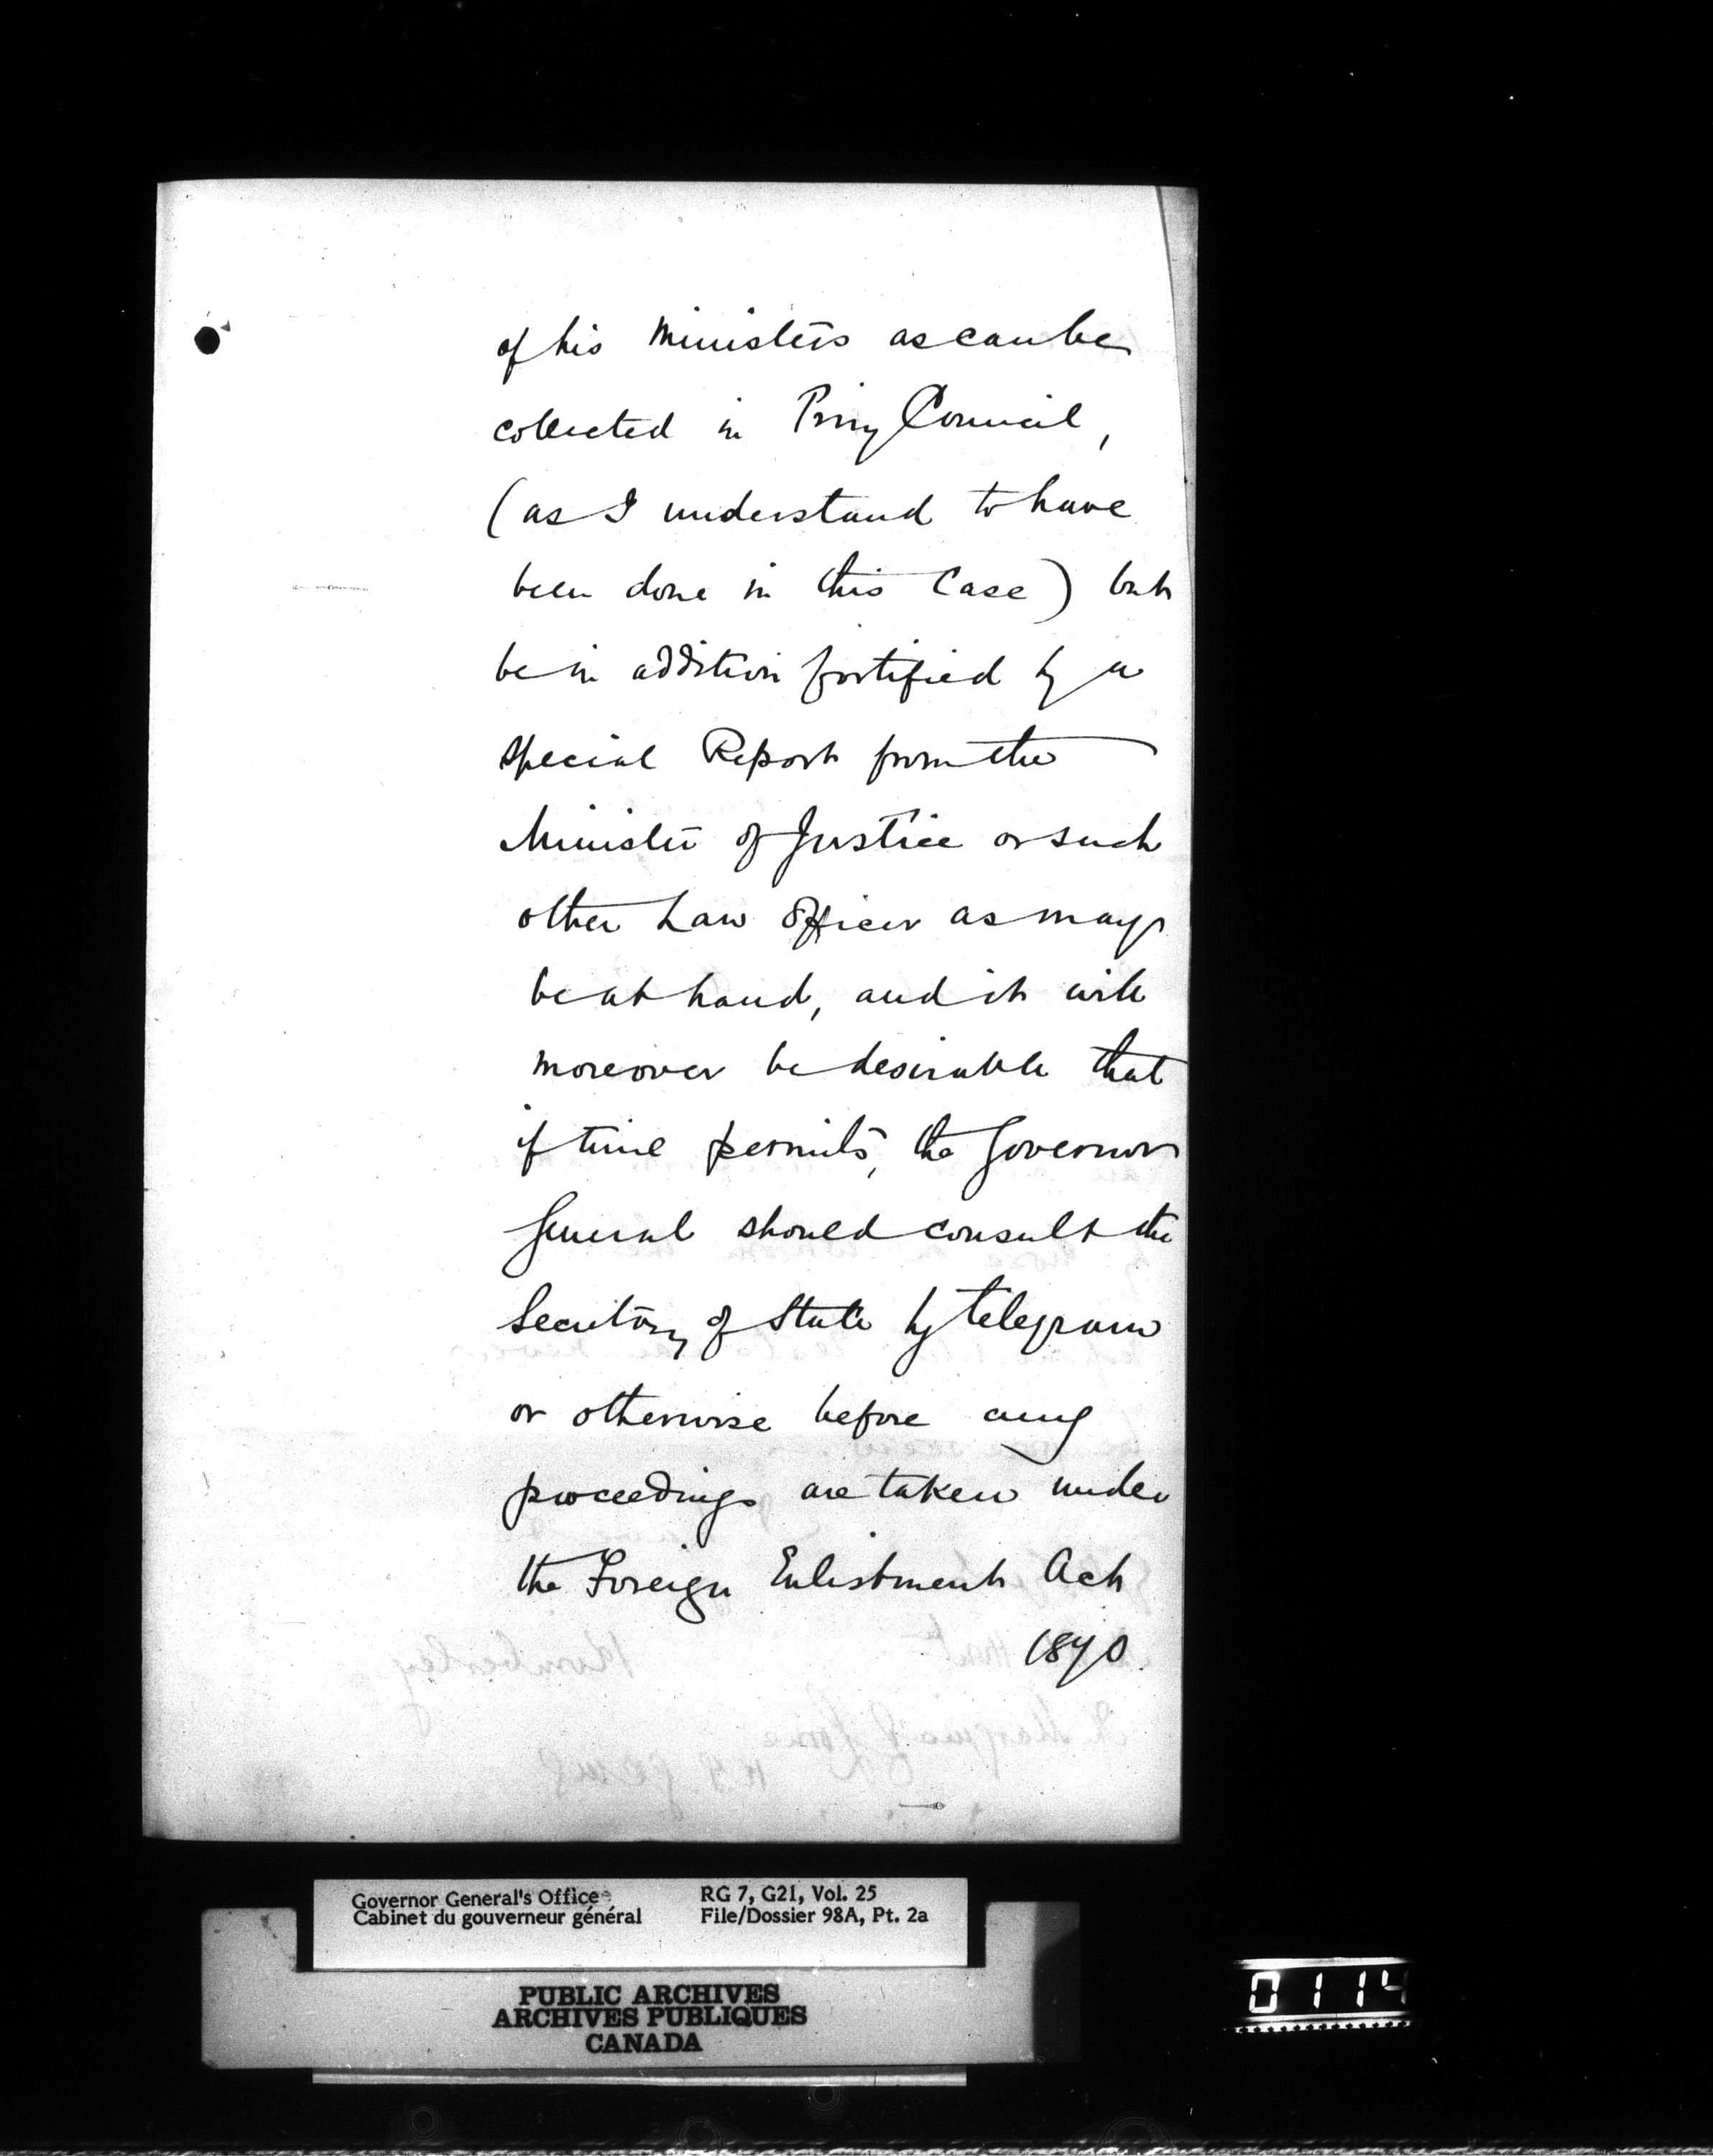 of his Ministers as can be
collected in Privy Council,
(as I understand to have
been done in this Case) but
be in addition fortified by a
special Report from the
Minister of Justice or such
other Law Officer as may
be at hand, and it will
moreover be desirable that
if time permits, the Governor
General should consult the
Secretary of State by telegram
or otherwise before any
proceedings are taken under
the Foreign Enlistment Act
1870.
Kimberley
Governor General's Office
Cabinet du gouverneur général
RG 7, G21, Vol. 25
File/Dossier 98A, Pt. 2a
PUBLIC ARCHIVES
ARCHIVES PUBLIQUES
CANADA
0114